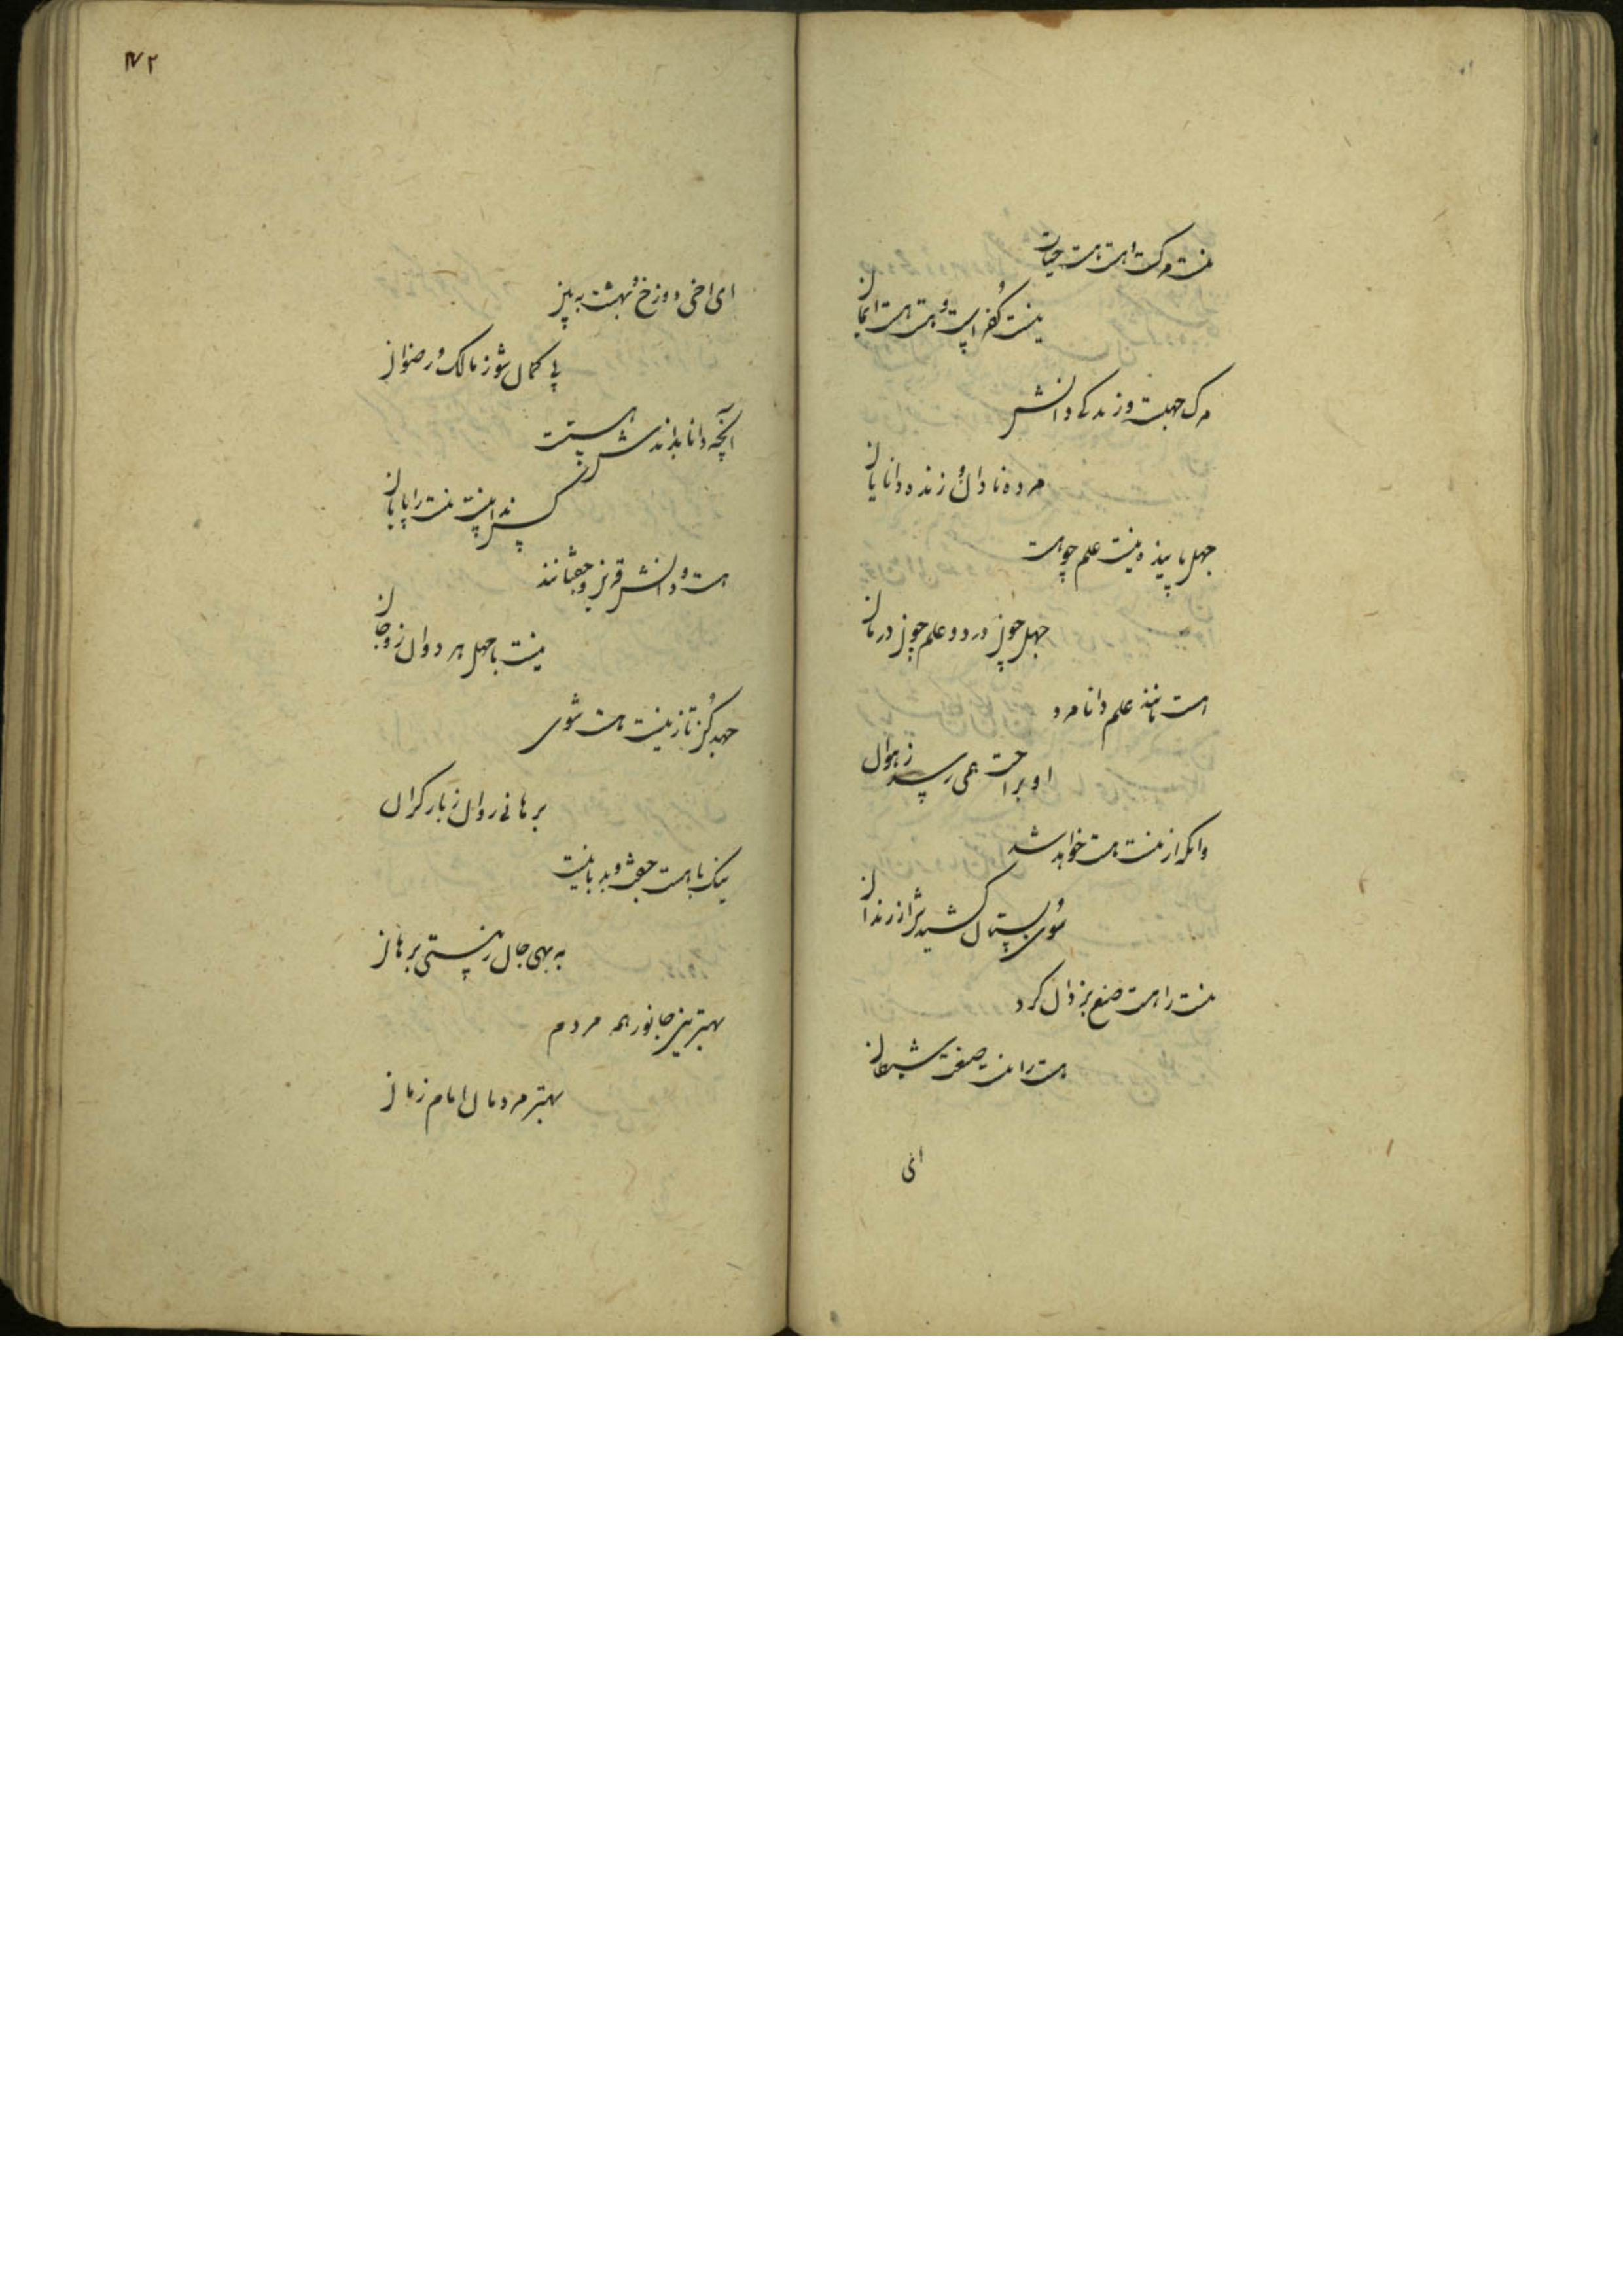 نیست مرگ است هست هست حیات
نیست کفر است و هست هست ایمان
مرگ جهلست و زندگی دانش
مرده نادان و زنده دانایان
جهل مانند نیست علم چو هست
جهل چون درد و علم چون درمان
هست مانند علم دانا مرد
او براحت همی رسد ز هوان
وانکه از نیست هست خواهد شد
سوی بستان کشیدش از زندان
نیست را هست صنع یزدان کرد
هست را نیست صنعت شیطان
ای
ای اخی دوزخ و بهشت ببین
بی کمان شو ز مالک و رضوان
آنچه دانا بداندش هستست
کس نداند نیست نیست را پایان
هست و دانش قرین و جفتانند
نیست با جهل هر دوان زوجان
جهد کن تا ز نیست هست شوی
برهانی روان ز بار گران
نیک با هست جفت و بد با نیست
به بهی جان ز نیستی برهان
بهترین جانور همه مردم
بهتر مردمان امام زمان